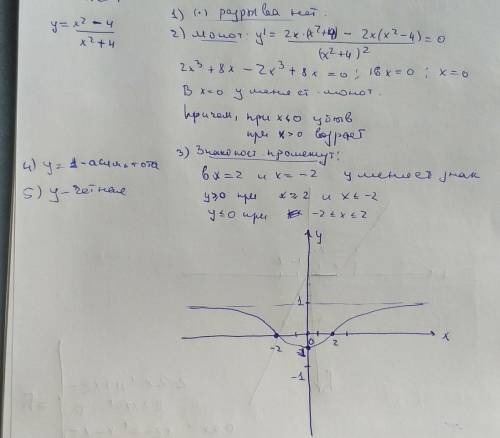 y = x² − 4 / x² + 4
1) (·) разрыва нет.
2) Монот: y' = 2x·(x²+4) − 2x(x²−4) / (x²+4)² = 0
2x³ + 8x − 2x³ + 8x = 0 ; 16x = 0 ; x = 0
В x=0 y меняет монот.
причем, при x<0 убыв
при x>0 возраст
3) Знакопост. промежут:
в x=2 и x=−2 y меняет знак
y≥0 при x≥2 и x≤−2
y≤0 при −2≤x≤2
4) y=1-асимптота
5) y-четная
y
1
−2 0 2 x
−1